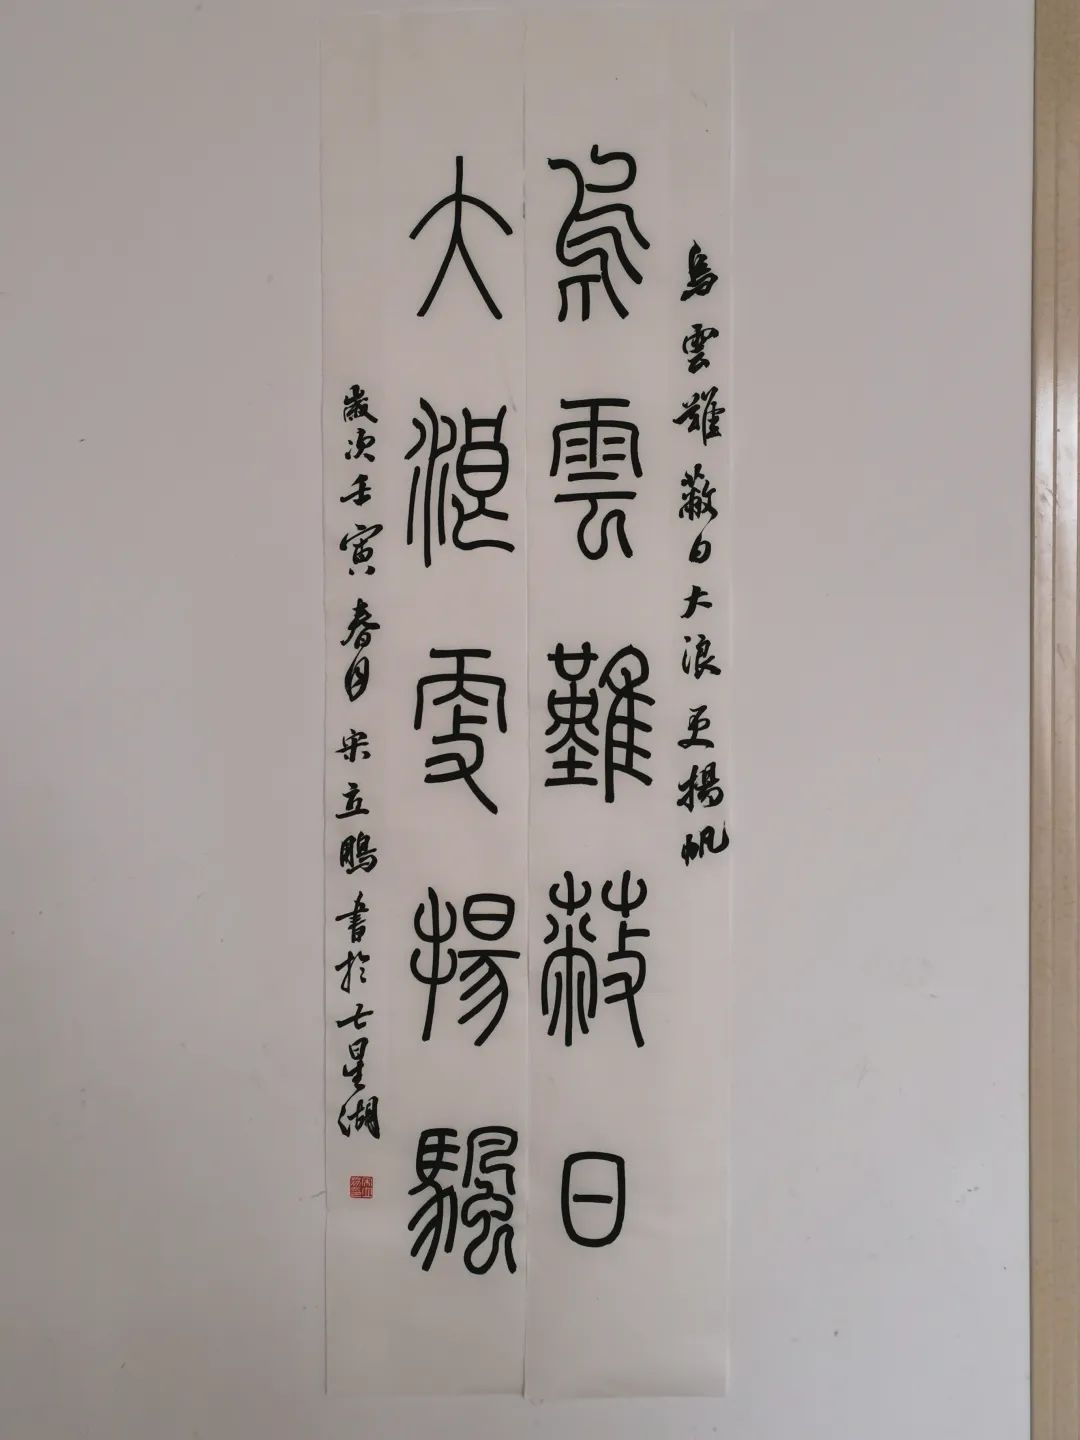 烏雲難蔽日大浪更揚帆
烏雲難蔽日
大浪更揚颿
歲次壬寅春月宋立鵬書於七星湖